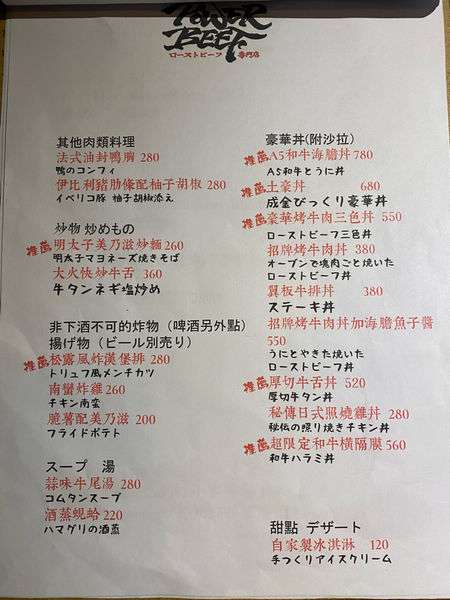 POWER
BEEF
ローストビーフ 専門店
其他肉類料理
法式油封鴨胸 280
鴨のコンフィ
伊比利豬肋條配柚子胡椒 280
イベリコ豚 柚子胡椒添え
炒物 炒めもの
推薦 明太子美乃滋炒麵 260
明太子マヨネーズ焼きそば
大火快炒牛舌 360
牛タンネギ塩炒め
非下酒不可的炸物（啤酒另外點）
揚げ物（ビール別売り）
推薦 松露風炸漢堡排 280
トリュフ風メンチカツ
南蠻炸雞 260
チキン南蛮
脆薯配美乃滋 200
フライドポテト
スープ 湯
蒜味牛尾湯 280
コムタンスープ
酒蒸蜆蛤 220
ハマグリの酒蒸
豪華丼(附沙拉)
推薦 A5和牛海膽丼 780
A5和牛とうに丼
推薦 土豪丼 680
成金びっくり豪華丼
推薦 豪華烤牛肉三色丼 550
ローストビーフ三色丼
招牌烤牛肉丼 380
オーブンで塊肉ごと焼いた
ローストビーフ丼
翼板牛排丼 380
ステーキ丼
招牌烤牛肉丼加海膽魚子醬
550
うにとやきた焼いた
ローストビーフ丼
推薦 厚切牛舌丼 520
厚切牛タン丼
秘傳日式照燒雞丼 280
秘伝の照り焼きチキン丼
推薦 超限定和牛橫隔膜 560
和牛ハラミ丼
甜點 デザート
自家製冰淇淋 120
手つくりアイスクリーム